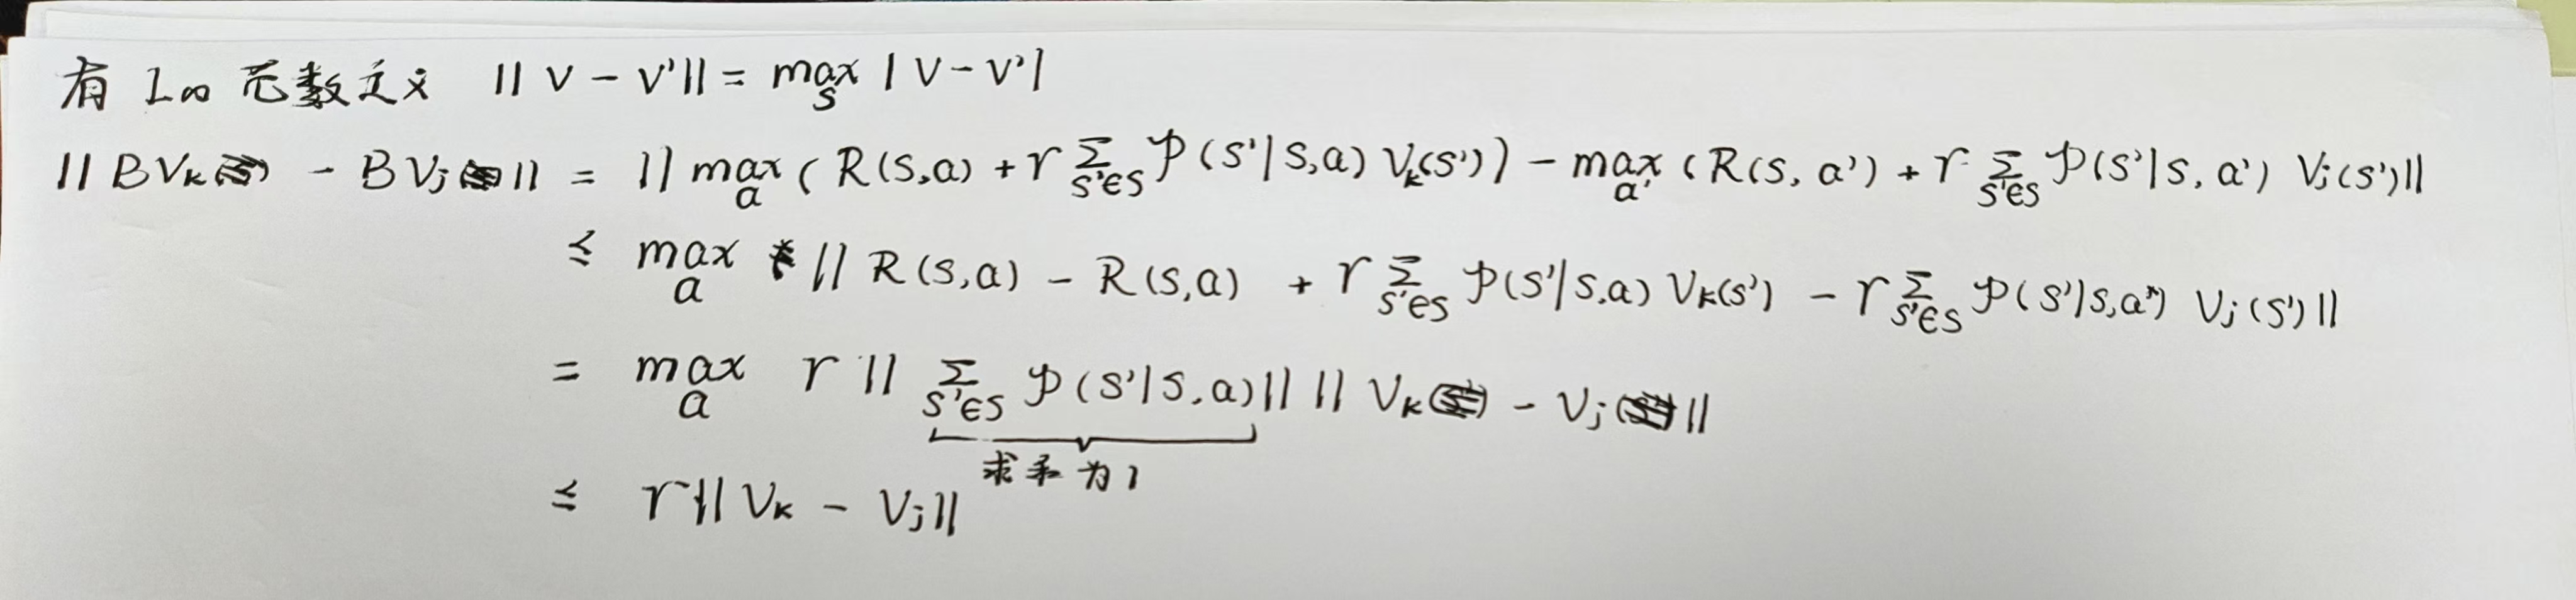 有 L∞ 范数定义 || V - V'|| = max_s | V - V'|
|| BV_k - BV_j || = || max_a ( R(s,a) + r Σ_{s'∈S} P(s'|s,a) V_k(s')) - max_{a'} (R(s, a') + r Σ_{s'∈S} P(s'|s, a') V_j(s')||
≤ max_a || R(s,a) - R(s,a) + r Σ_{s'∈S} P(s'|s,a) V_k(s') - r Σ_{s'∈S} P(s'|s,a) V_j(s')||
= max_a r || Σ_{s'∈S} P(s'|s,a)|| || V_k - V_j ||
求和为1
≤ r || V_k - V_j||